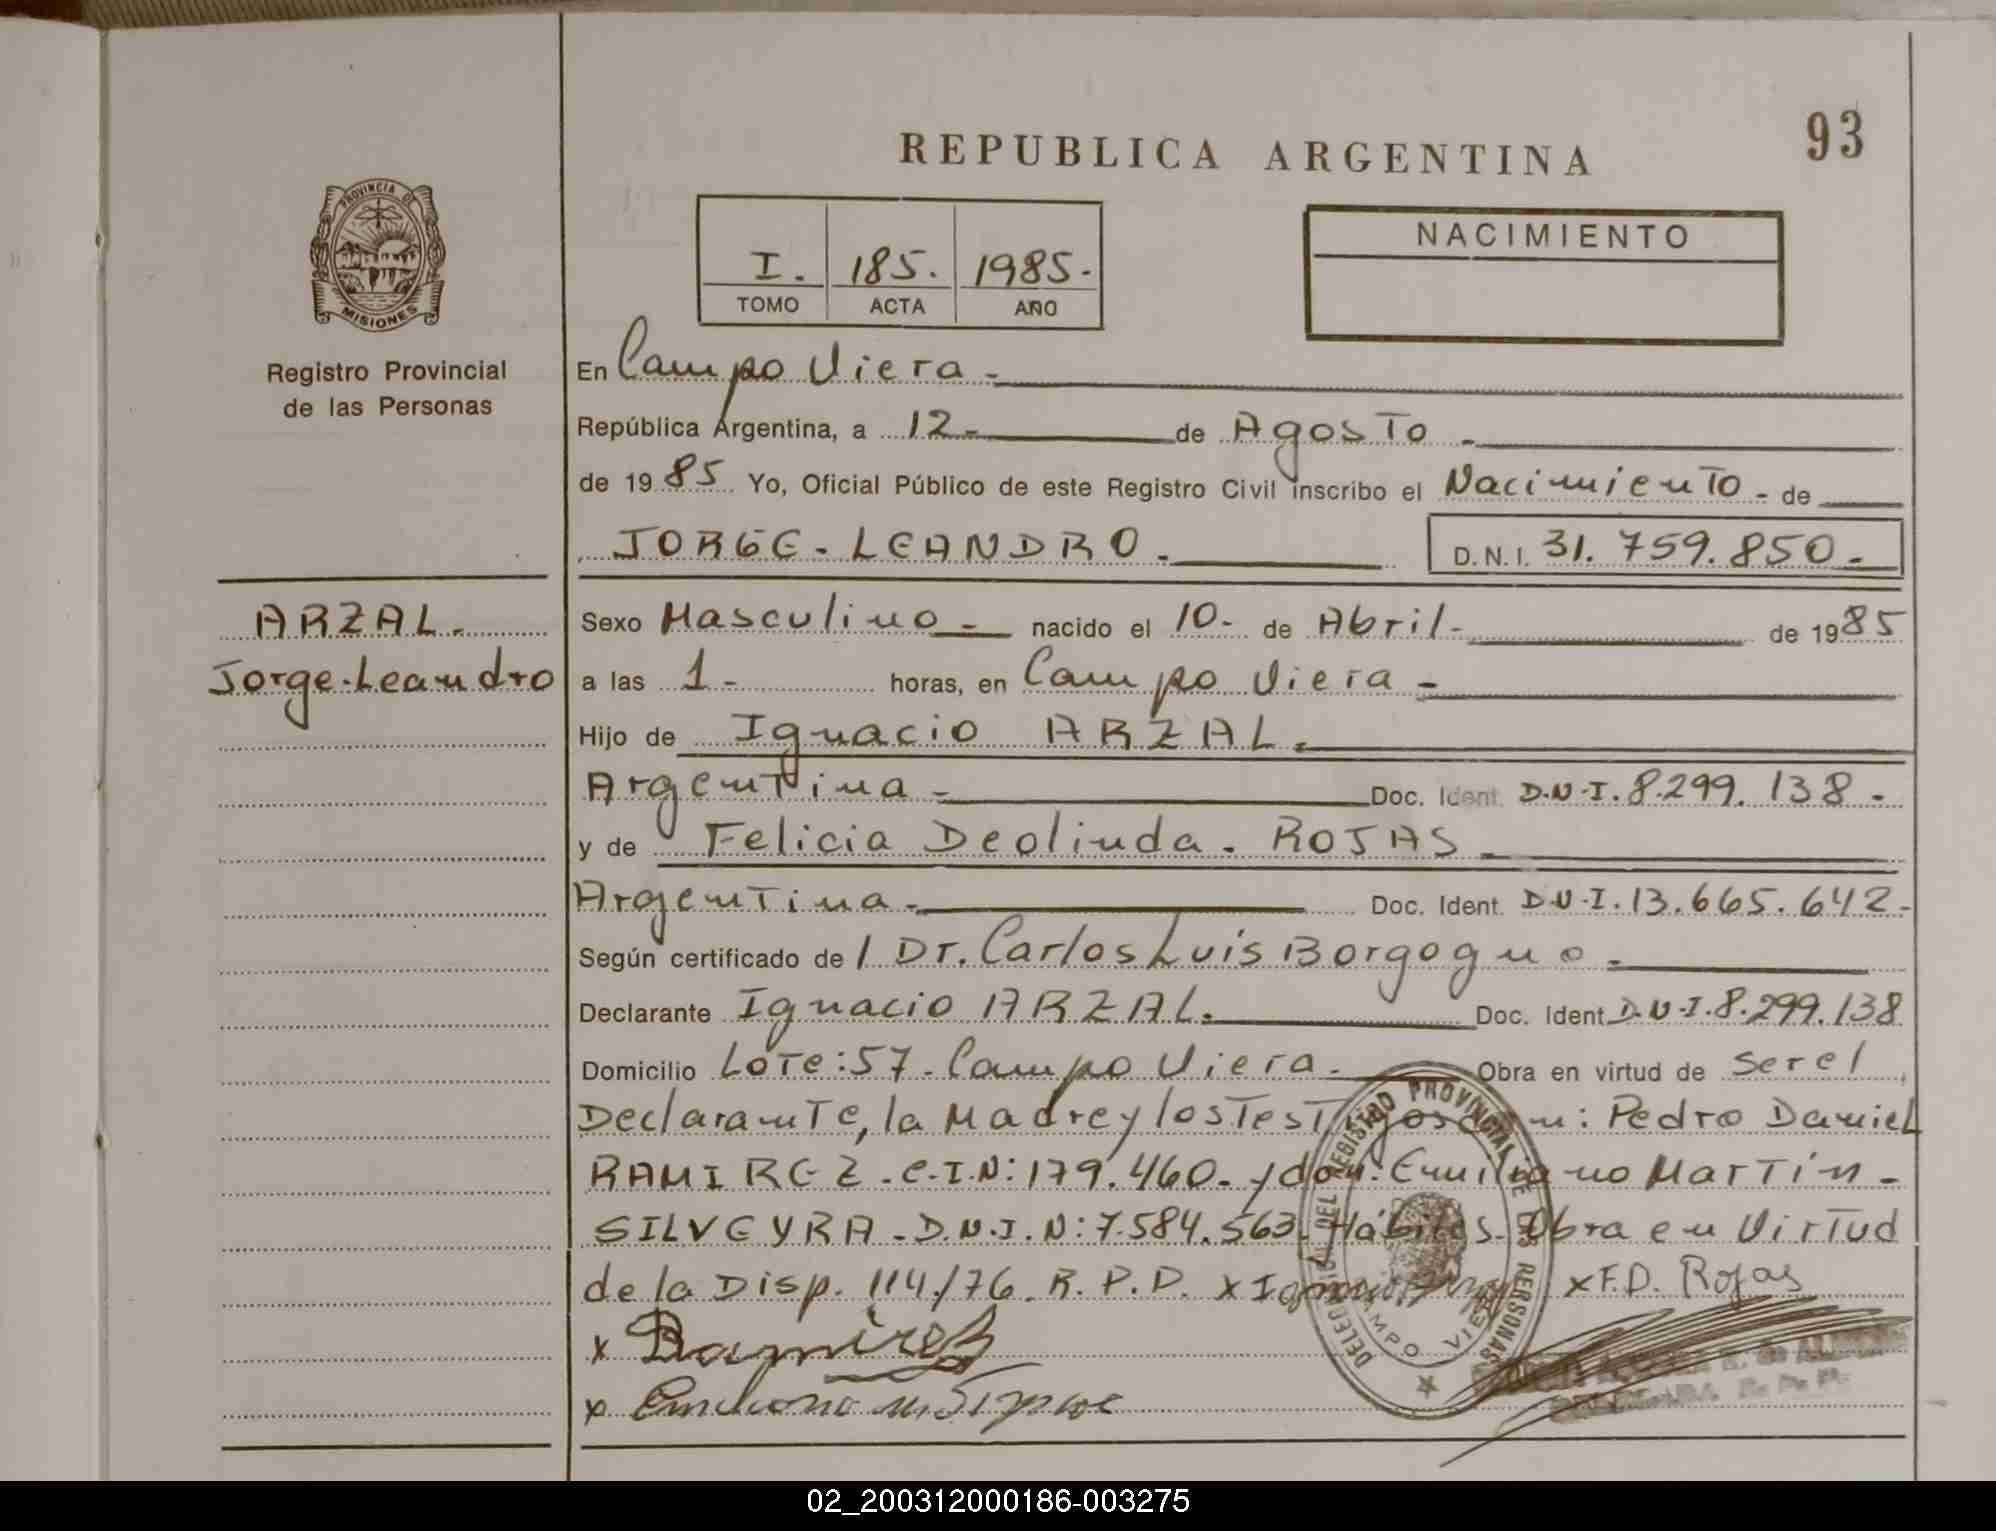 93
REPUBLICA ARGENTINA
PROVINCIA DE
MISIONES
Registro Provincial
de las Personas
I. 185. 1985.
TOMO ACTA AÑO
NACIMIENTO
En Campo Viera -
República Argentina, a 12- de Agosto -
de 1985 Yo, Oficial Público de este Registro Civil inscribo el Nacimiento - de
JORGE - LEANDRO. D.N.I. 31.759.850-
ARZAL.
Jorge-Leandro
Sexo Masculino - nacido el 10- de Abril- de 1985
a las 1- horas, en Campo Viera -
Hijo de Ignacio ARZAL.
Argentina - Doc. Ident. D.N.I. 8.299.138 -
y de Felicia Deolinda. ROJAS -
Argentina - Doc. Ident. D.N.I. 13.665.642-
Según certificado de / Dr. Carlos Luis Borgogno -
Declarante Ignacio ARZAL. Doc. Ident. D.N.I. 8.299.138
Domicilio Lote:57-Campo Viera - Obra en virtud de ser el
Declarante, la Madre y los Testigos son: Pedro Daniel
RAMIREZ - C.I.N: 179.460- y don: Emiliano Martín -
SILVEYRA - D.N.I.N: 7.584.563. Hábiles. Obra en Virtud
de la Disp. 114/76. R.P.P. x Ignacio Arzal x F.D. Rojas
x Ramirez
x Emiliano M.
DELEGACION DEL REGISTRO PROVINCIAL DE LAS PERSONAS
CAMPO VIERA
02_200312000186-003275